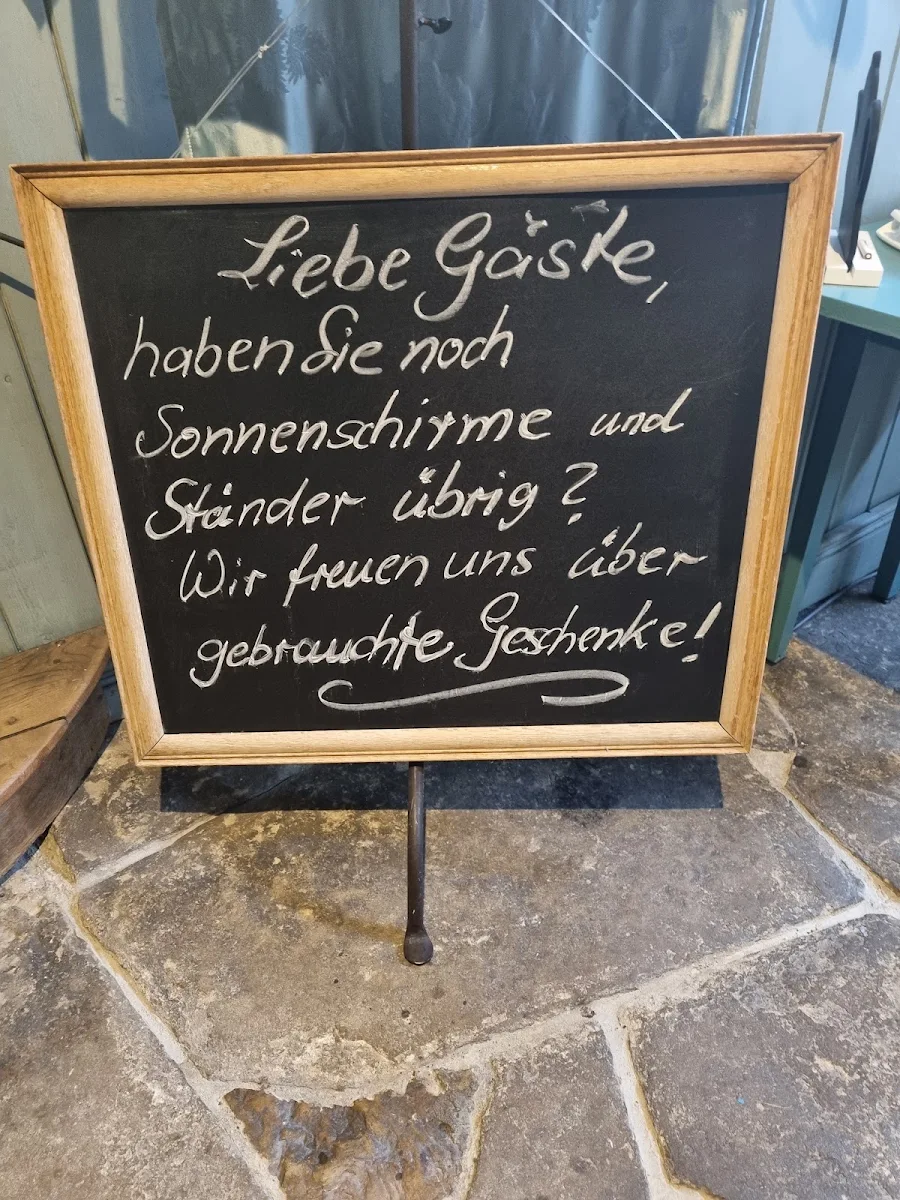 Liebe Gäste,
haben Sie noch
Sonnenschirme und
Ständer übrig?
Wir freuen uns über
gebrauchte Geschenke!